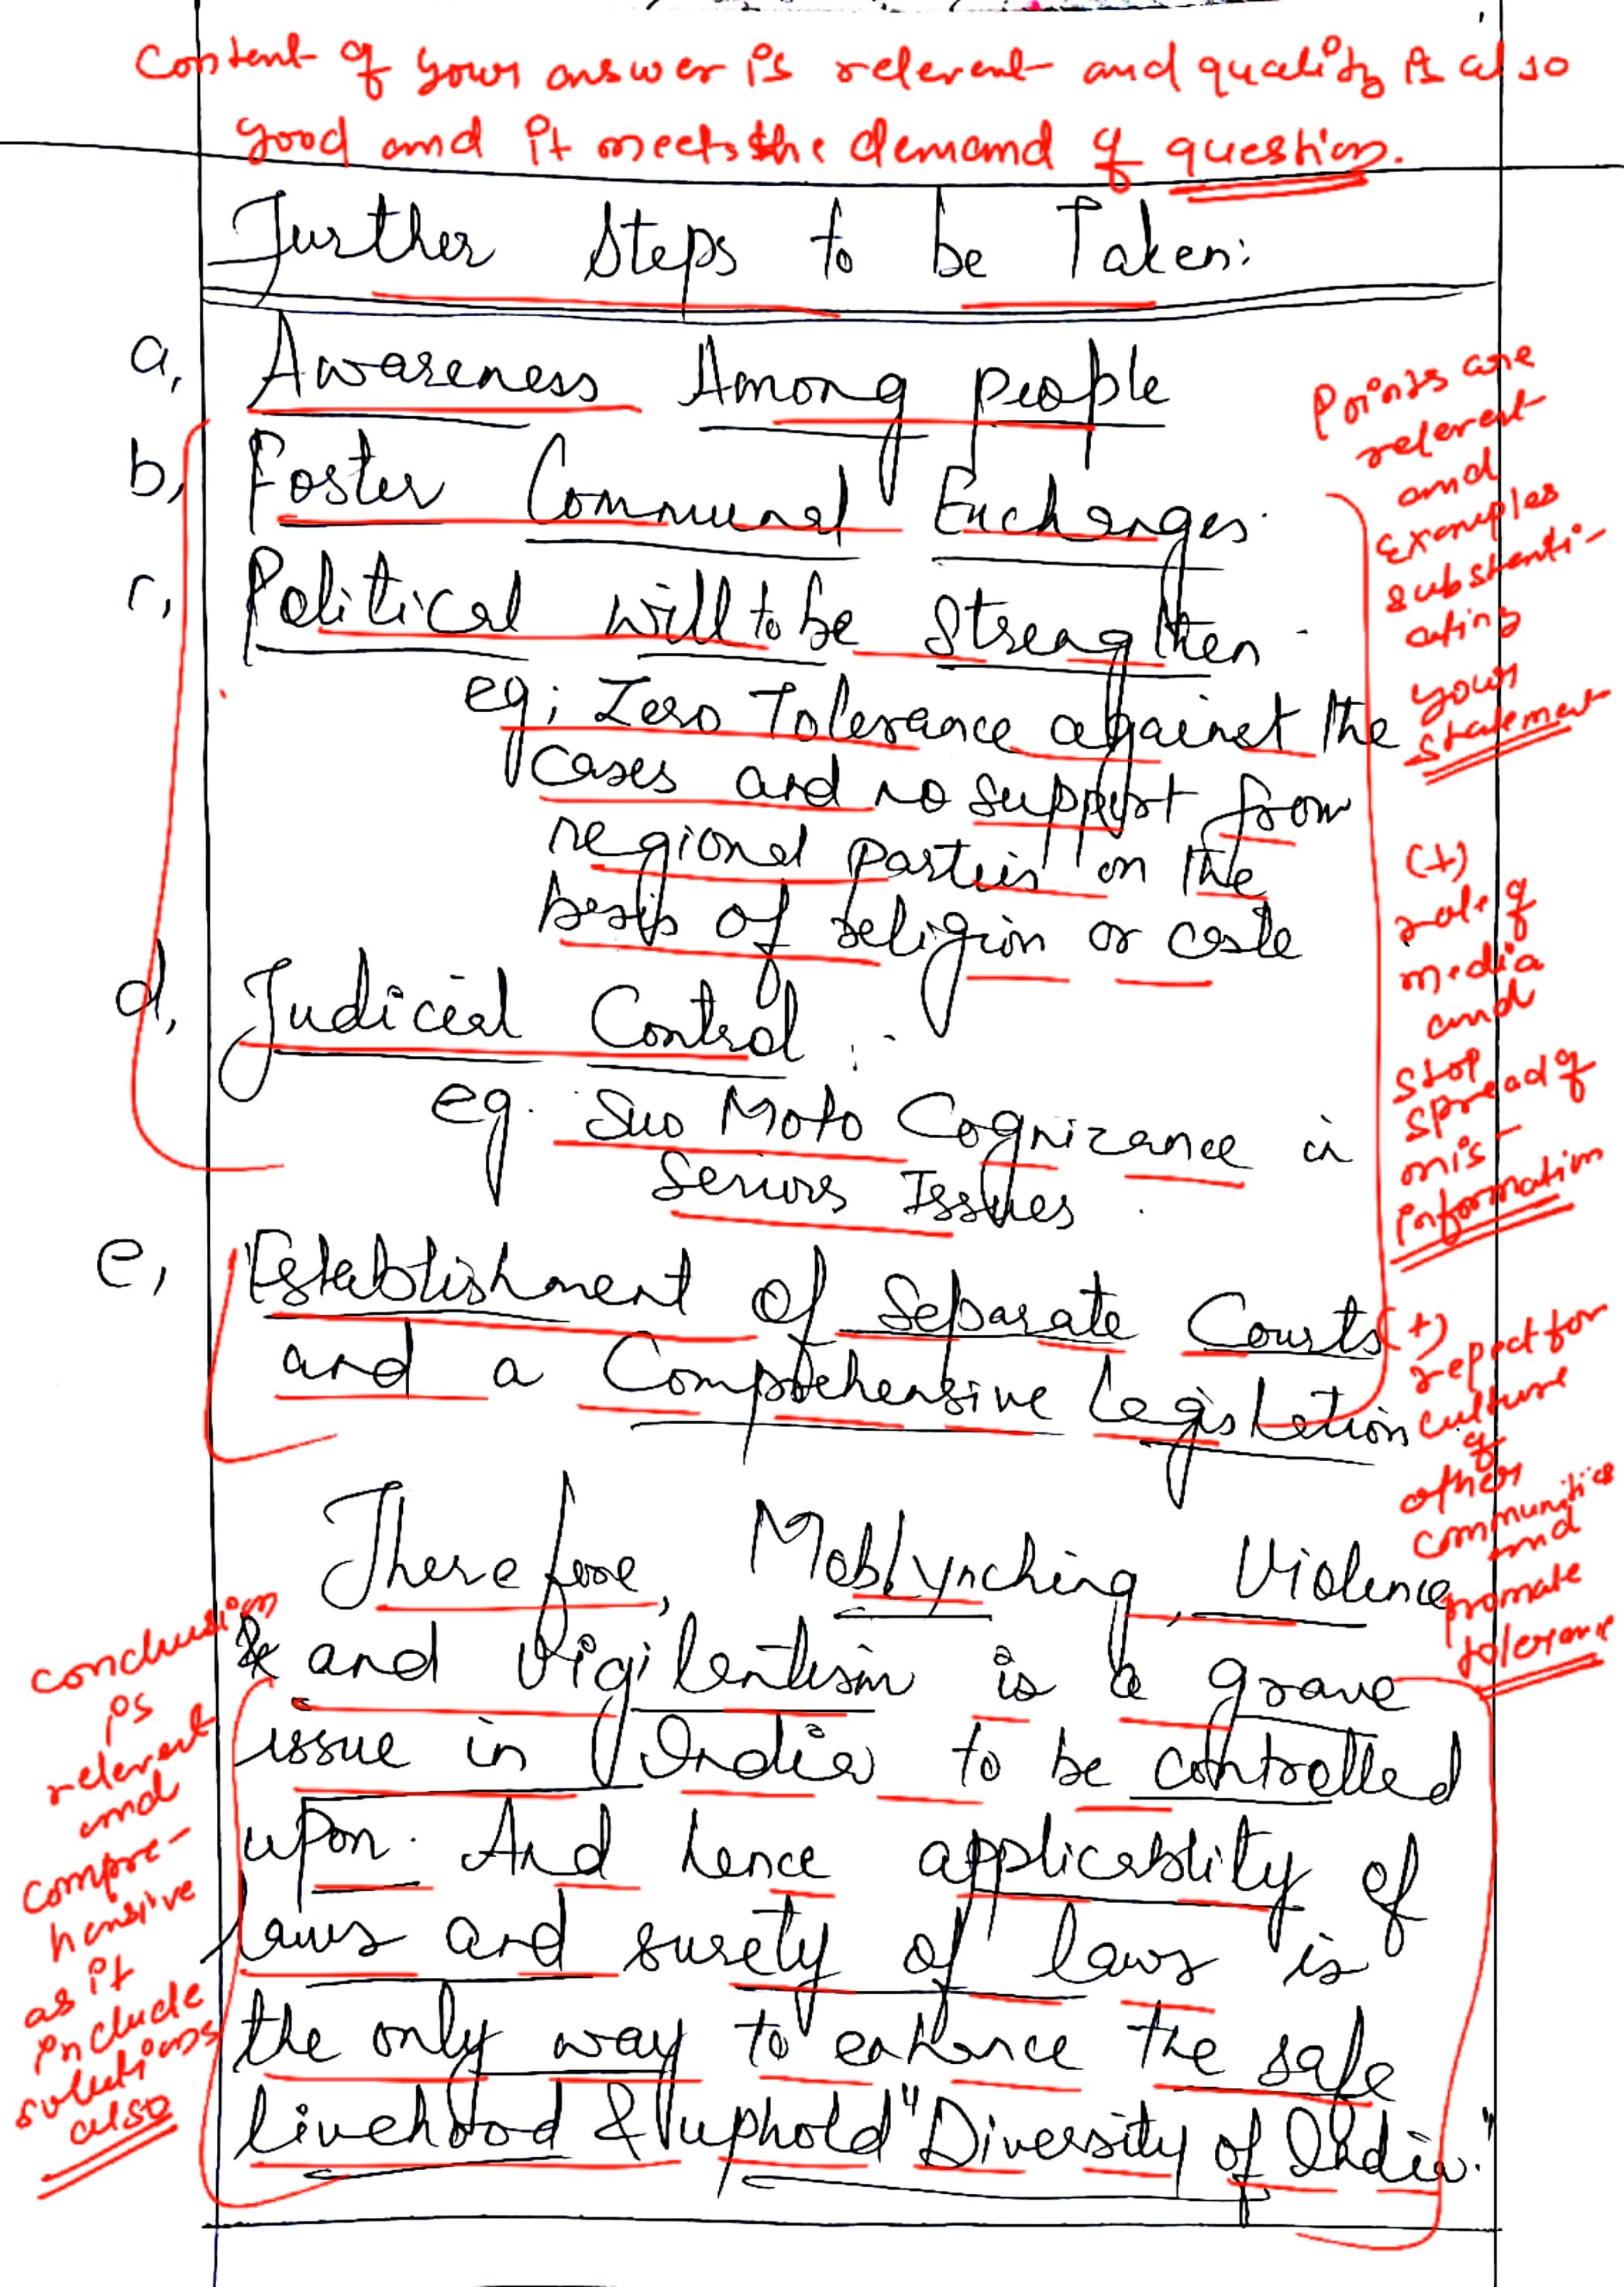 Content of your answer is relevent and quality is also
good and it meets the demand of question.
Further Steps to be Taken:
a, Awareness Among people
b, Foster Communal Exchanges.
c, Political will to be strengthen
eg; Zero Tolerance against the
cases and no support from
regional parties on the
basis of religion or caste
d, Judicial Control.
eg. Suo Moto Cognizance in
Serious Issues.
e, Establishment of Separate Courts
and a Comprehensive Legislation
Therefore, Moblynching, Violence
& and Vigilentism is a grave
issue in India to be controlled
upon. And hence applicability of
laws and surety of laws is
the only way to enhance the safe
livehood & uphold "Diversity of India."
Points are
relevent
and
examples
substanti-
ating
your
statement
(+)
role of
media
and
stop
spread of
mis-
information
(+)
repect for
culture
of
other
communities
and
promote
tolerance
conclusion
is
relevent
and
compre-
hensive
as it
include
solutions
also